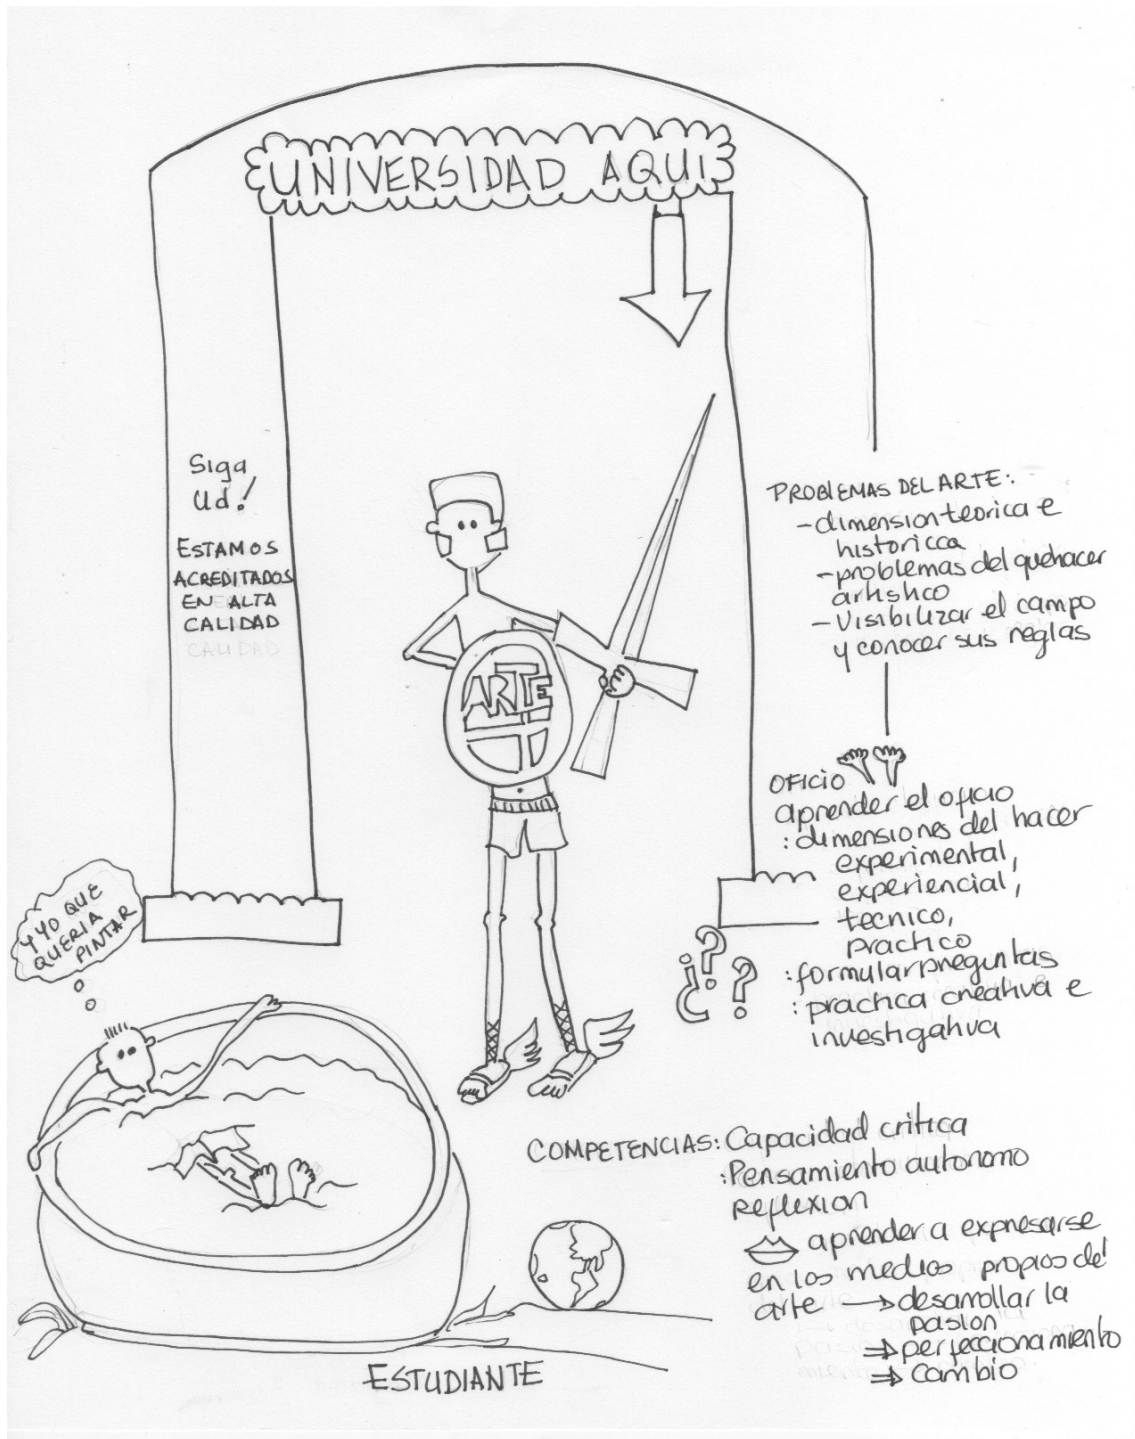 UNIVERSIDAD AQUI
Siga
Ud!
ESTAMOS
ACREDITADOS
EN ALTA
CALIDAD
CALIDAD
ARTE
PROBLEMAS DEL ARTE:
- dimension teorica e
historicca
- problemas del quehacer
artistico
- Visibilizar el campo
y conocer sus reglas
OFICIO
aprender el oficio
: dimensiones del hacer
experimental,
experiencial,
tecnico,
practico
: formular preguntas
: practica creativa e
investigativa
¿??
Y YO QUE
QUERIA
PINTAR
COMPETENCIAS: Capacidad critica
: Pensamiento autonomo
Reflexion
aprender a expresarse
en los medios propios del
arte → desarrollar la
pasion
⇒ perfeccionamiento
⇒ cambio
ESTUDIANTE